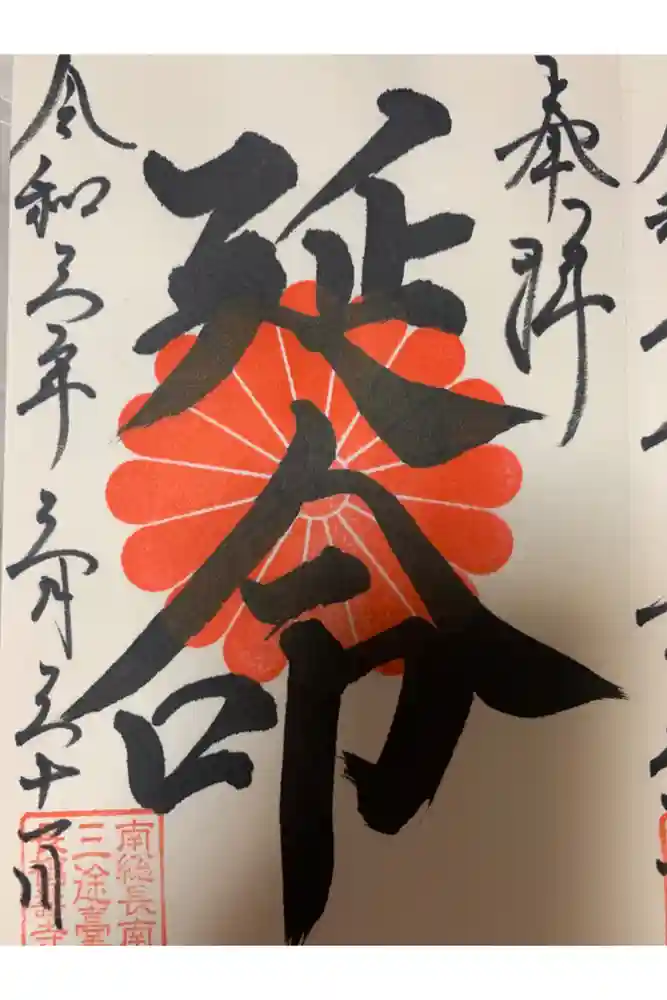 奉拝
延命
令和三年三月三十一日
南総長南
三途臺
長福壽寺